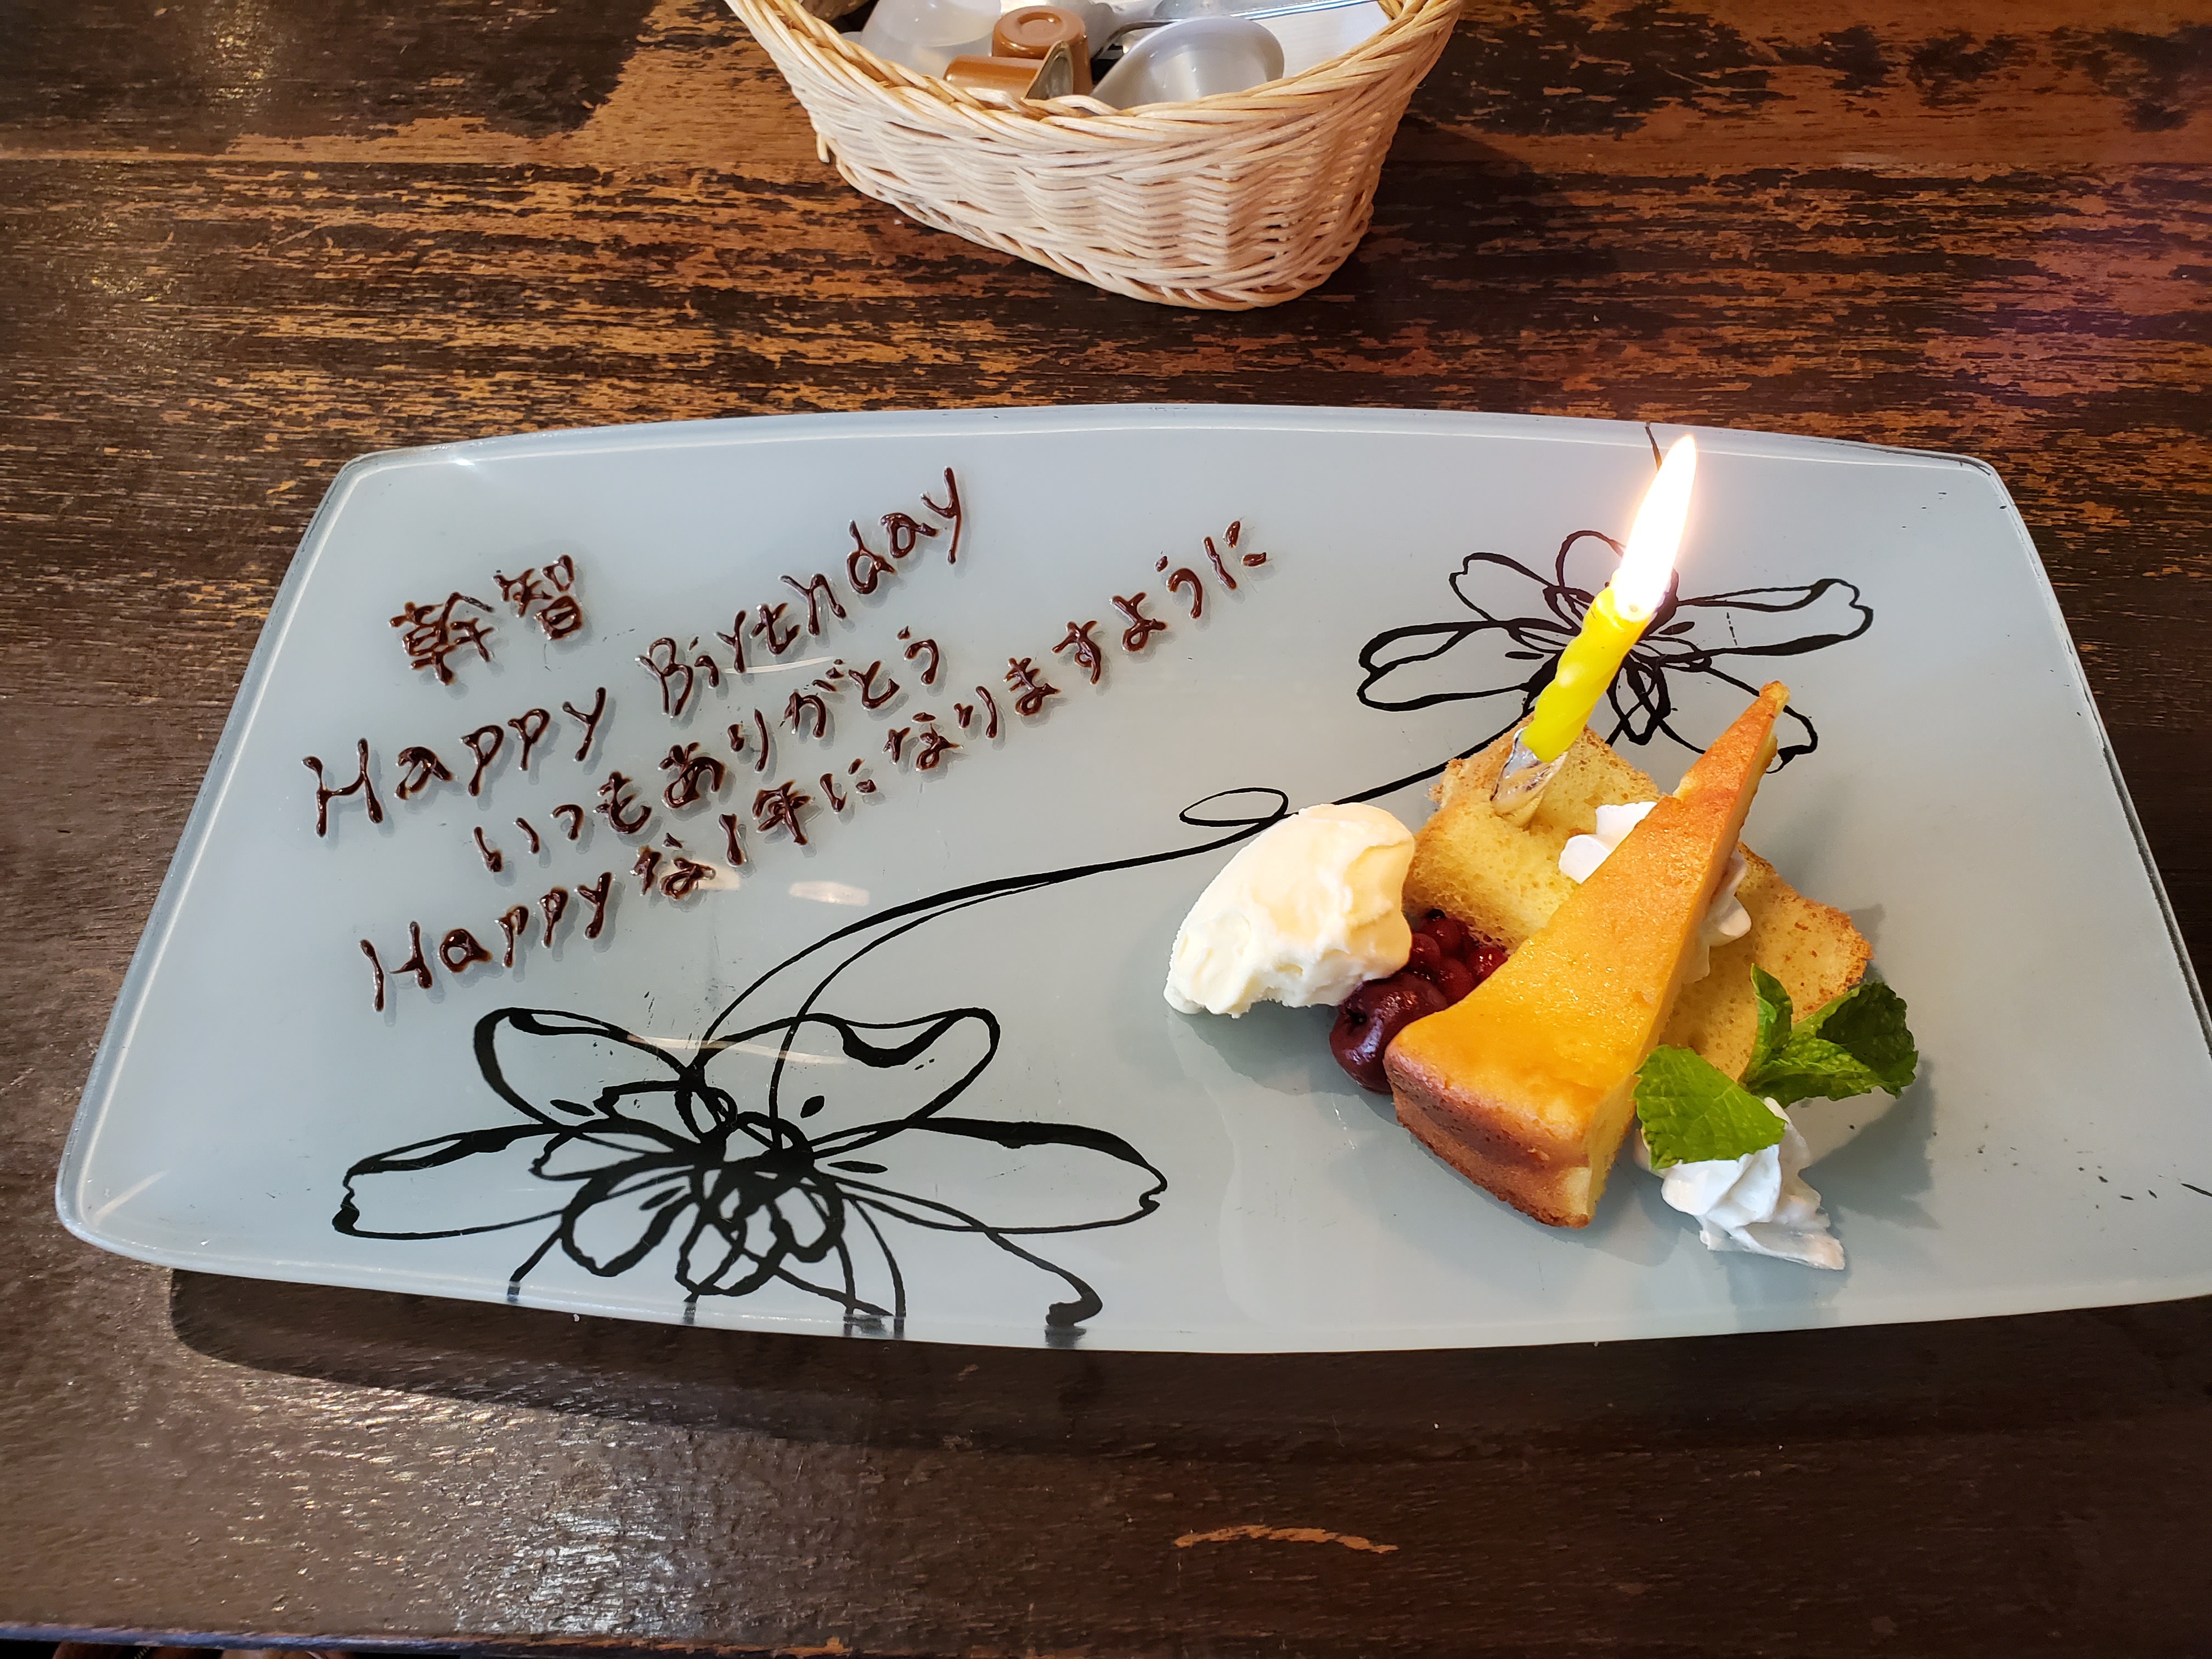 幹智
Happy Birthday
いつもありがとう
Happyな1年になりますように